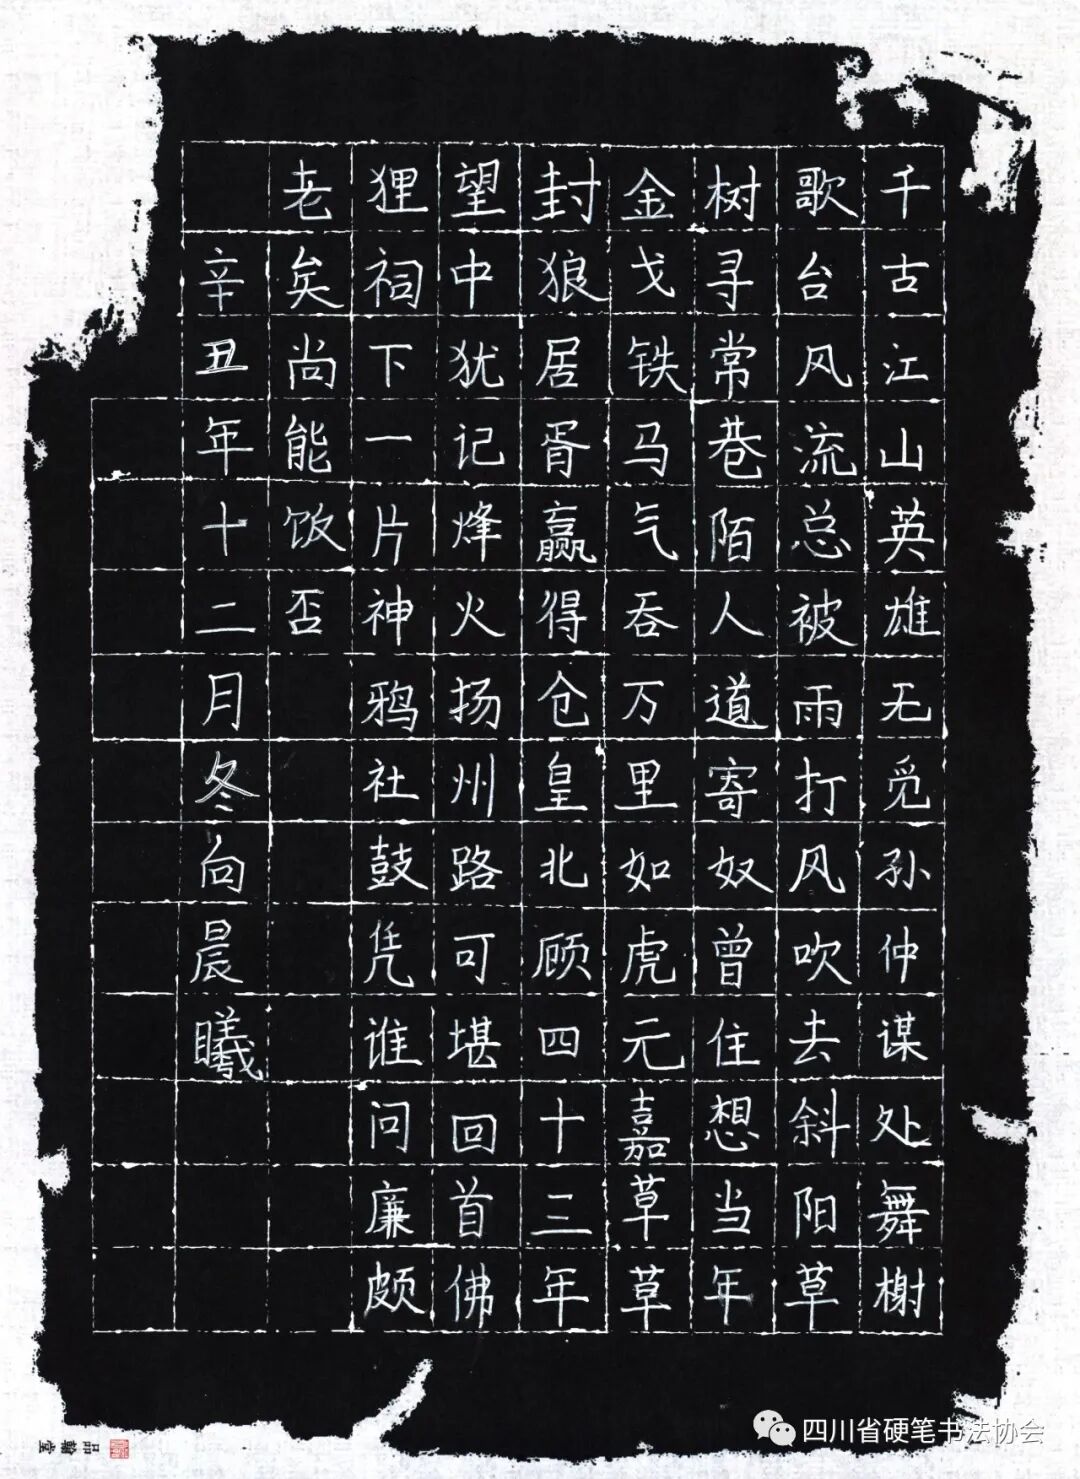 千古江山英雄无觅孙仲谋处舞榭
歌台风流总被雨打风吹去斜阳草
树寻常巷陌人道寄奴曾住想当年
金戈铁马气吞万里如虎元嘉草草
封狼居胥赢得仓皇北顾四十三年
望中犹记烽火扬州路可堪回首佛
狸祠下一片神鸦社鼓凭谁问廉颇
老矣尚能饭否
辛丑年十二月冬向晨曦
品翰堂
四川省硬笔书法协会